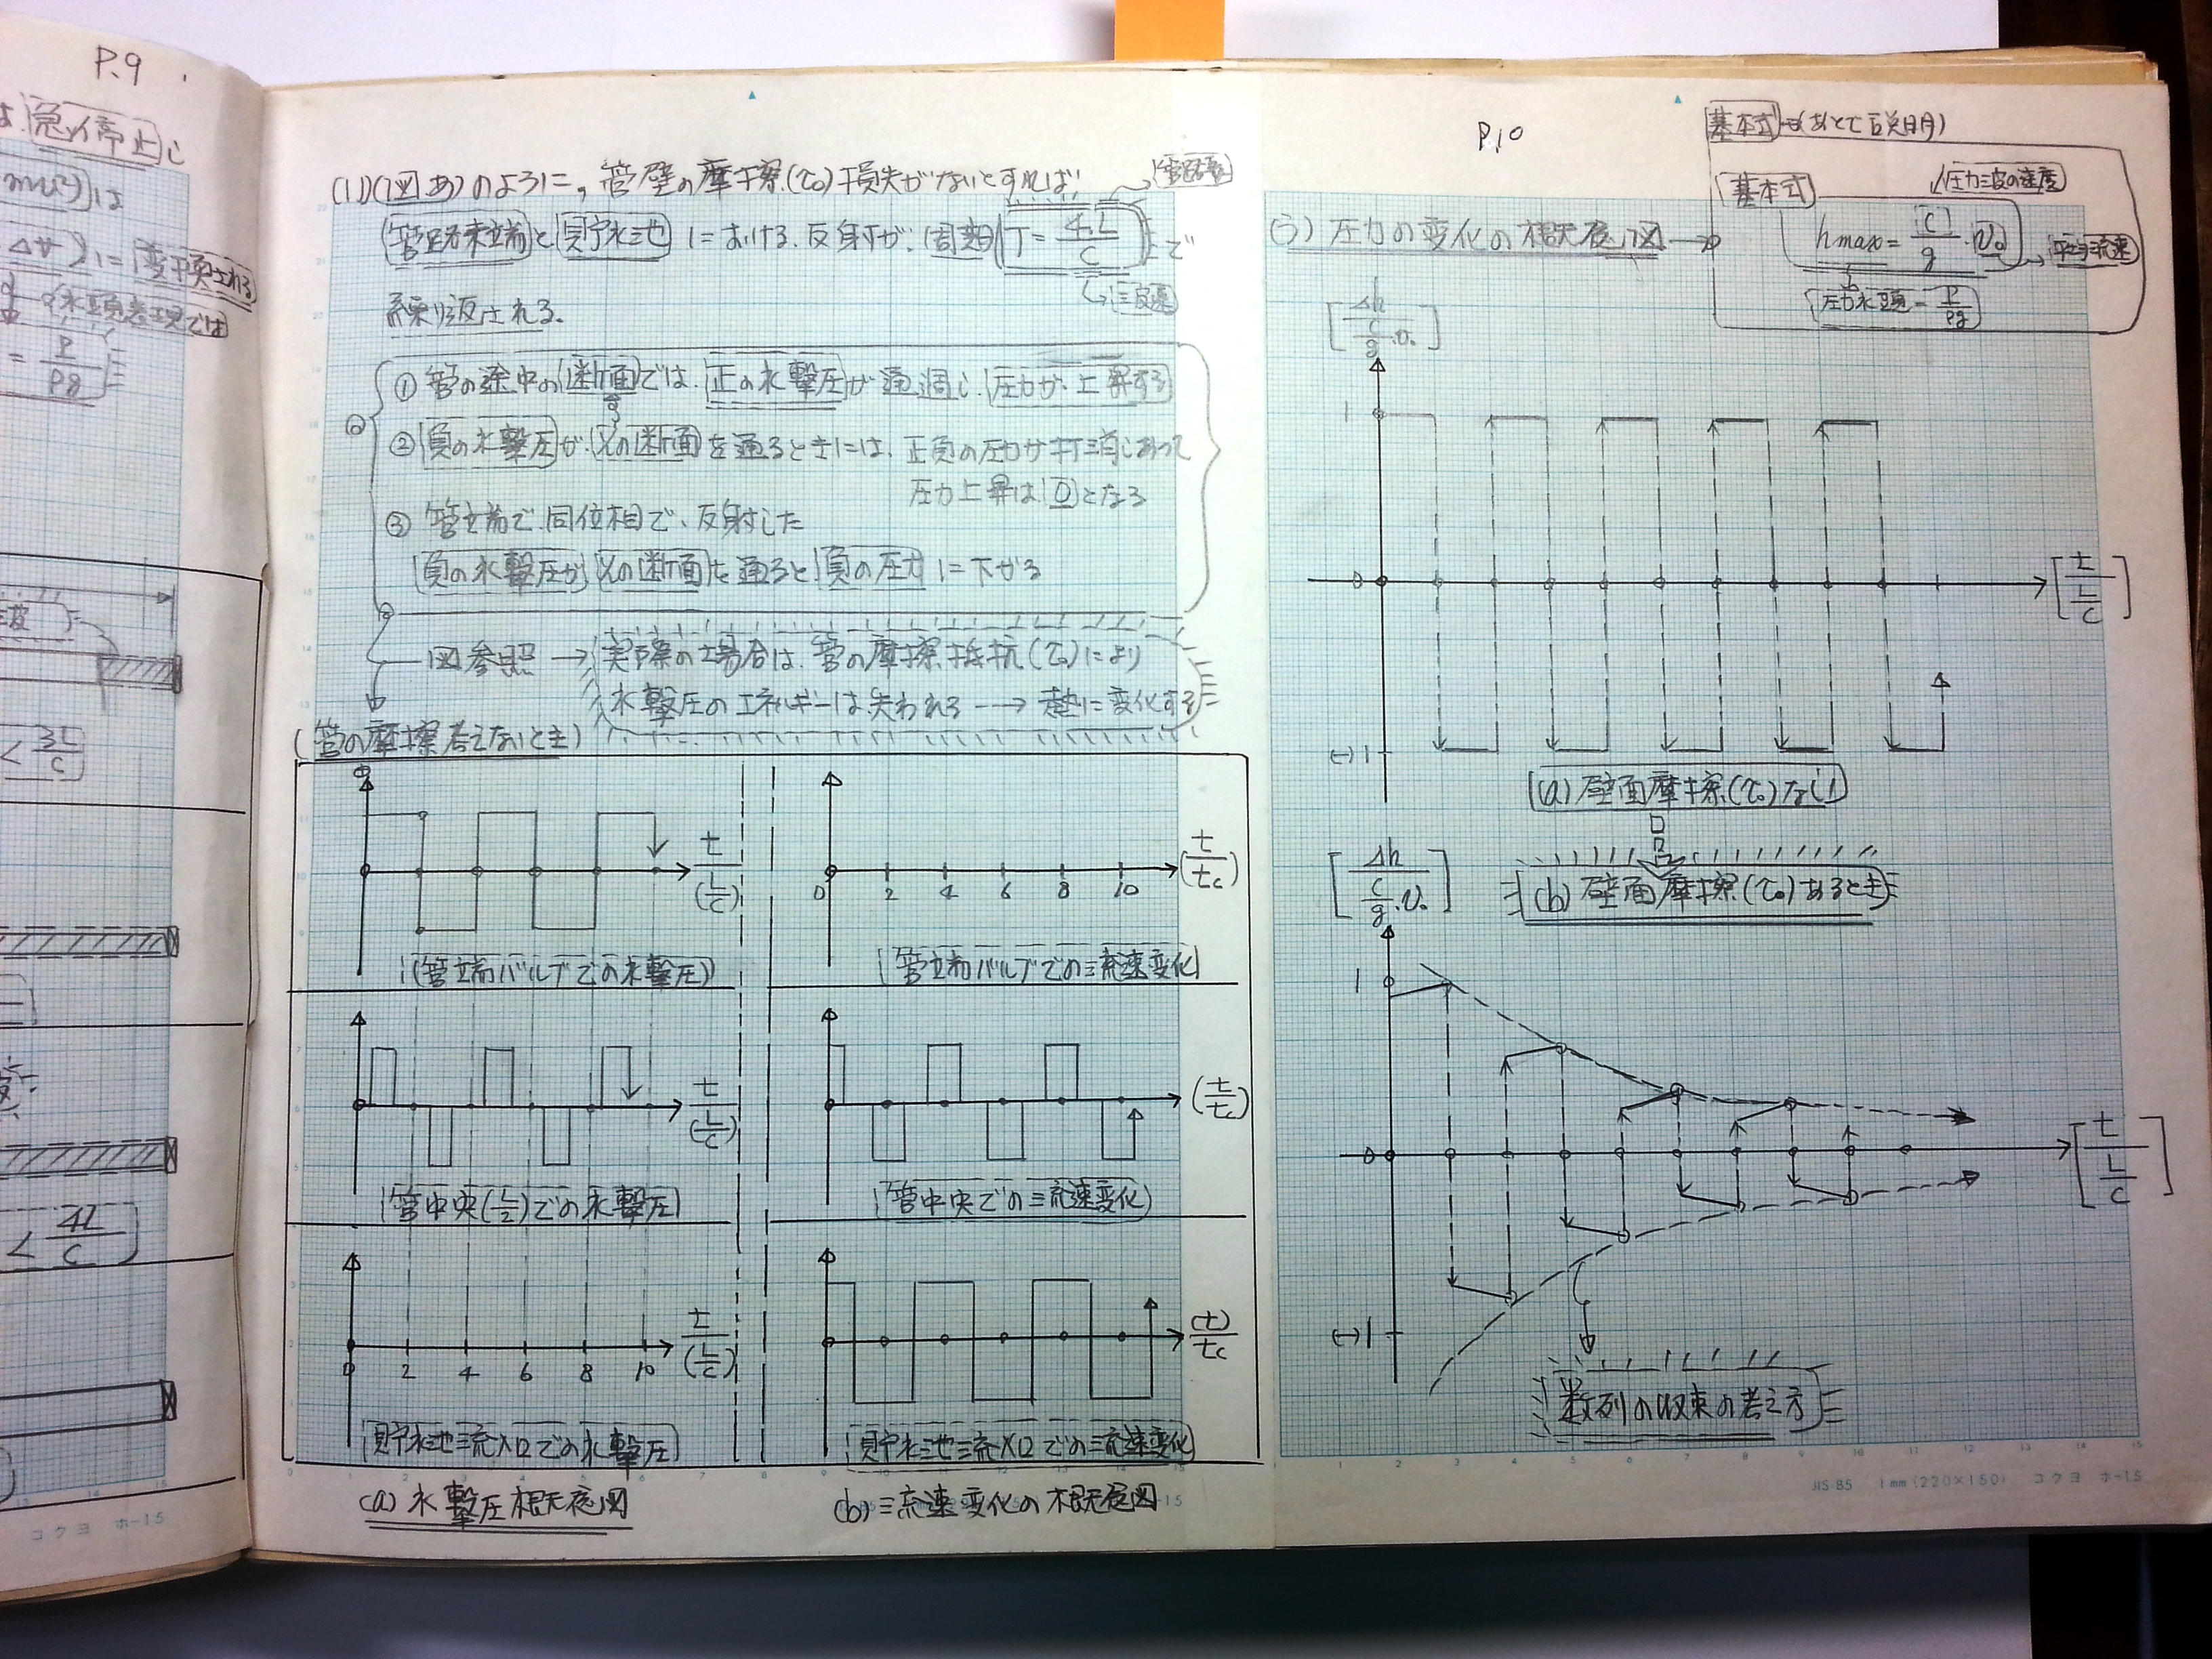 P.9
急停止し
変換される
水頭表現では
= P/ρg
< 3L/C
< 4L/C
コクヨ ホ-15
(1)(図あ)のように, 管壁の摩擦(τ₀)損失がないとすれば,
管路長
管路末端と貯水池における反射が, 周期 T = 4L/C で
波速
繰り返される。
① 管の途中の断面では, 正の水撃圧が通過し, 圧力が上昇する
② 負の水撃圧が, その断面を通るときには, 正負の圧力が打ち消しあって
圧力上昇は 0 となる
③ 管端で, 同位相で, 反射した
負の水撃圧が その断面を通ると 負の圧力に下がる
図参照 → 実際の場合は, 管の摩擦抵抗(τ₀)により
水撃圧のエネルギーは失われる --→ 熱に変化する
(管の摩擦考えないとき)
t/(L/C)
(管端バルブでの水撃圧)
0 2 4 6 8 10 (t/tc)
管端バルブでの流速変化
t/(L/C)
管中央(L/2)での水撃圧
(t/tc)
管中央での流速変化
0 2 4 6 8 10 t/(L/C)
貯水池流入口での水撃圧
(t)/tc
貯水池流入口での流速変化
(a) 水撃圧概念図
(b) 流速変化の概念図
P.10
基本式 →(あとで説明)
基本式
圧力波の速度
hmax = C/g · v₀
平均流速
圧力水頭 = P/ρg
(う) 圧力の変化の概念図 →
[Δh / (C/g · v₀)]
1
0
[t/(L/C)]
(-)1
(a) 壁面摩擦(τ₀)なし
[Δh / (C/g · v₀)]
(b) 壁面摩擦(τ₀)あるとき
1
0
[t/(L/C)]
(-)1
数列の収束の考え方
JIS B5 1mm (220×150) コクヨ ホ-15